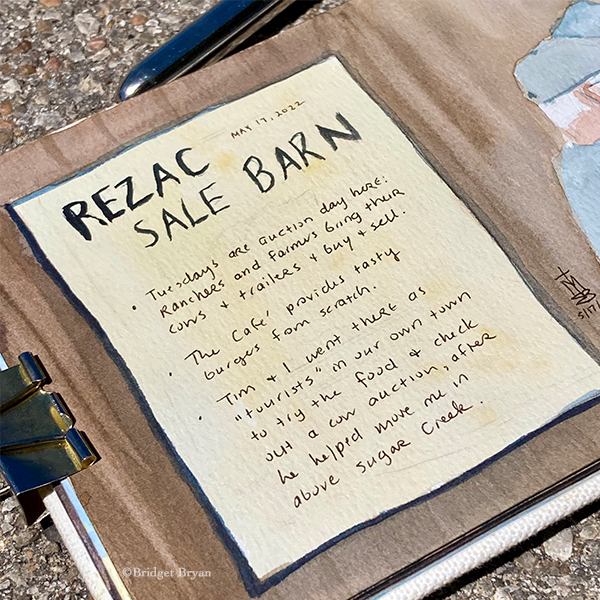 MAY 17, 2022
REZAC
SALE BARN
• Tuesdays are auction day here:
Ranchers and Farmers bring their
cows & trailers & buy & sell.
• The Café provides tasty
burges from scratch.
• Tim & I went there as
"tourists" in our own town
to try the food & check
out a cow auction, after
he helped move me in
above Sugar Creek.
5/17/
©Bridget Bryan